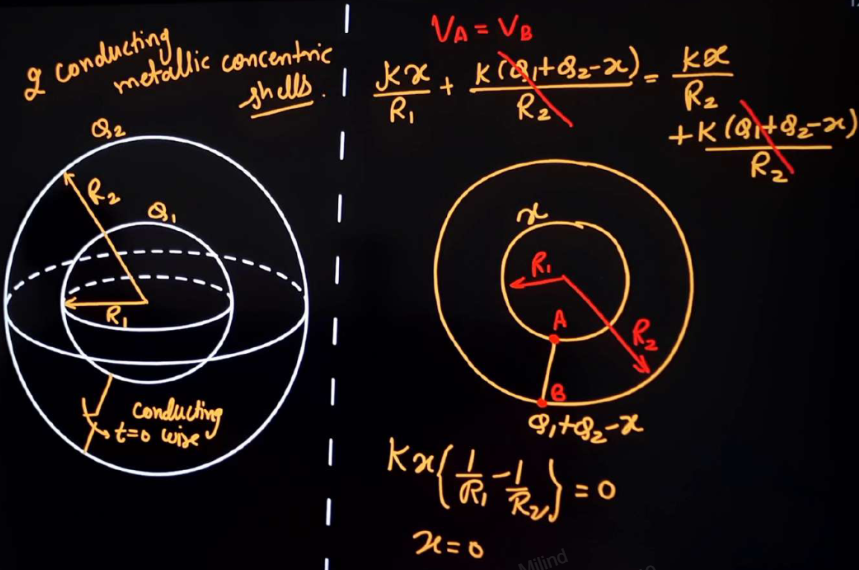 2 conducting
metallic concentric
shells.
Q₂
R₂
Q₁
R₁
conducting
t=0 wire
V_A = V_B
Kx/R₁ + K(Q₁+Q₂-x)/R₂ = Kx/R₂
+ K(Q₁+Q₂-x)/R₂
x
R₁
A
R₂
B
Q₁+Q₂-x
Kx{1/R₁ - 1/R₂} = 0
x=0
Milind